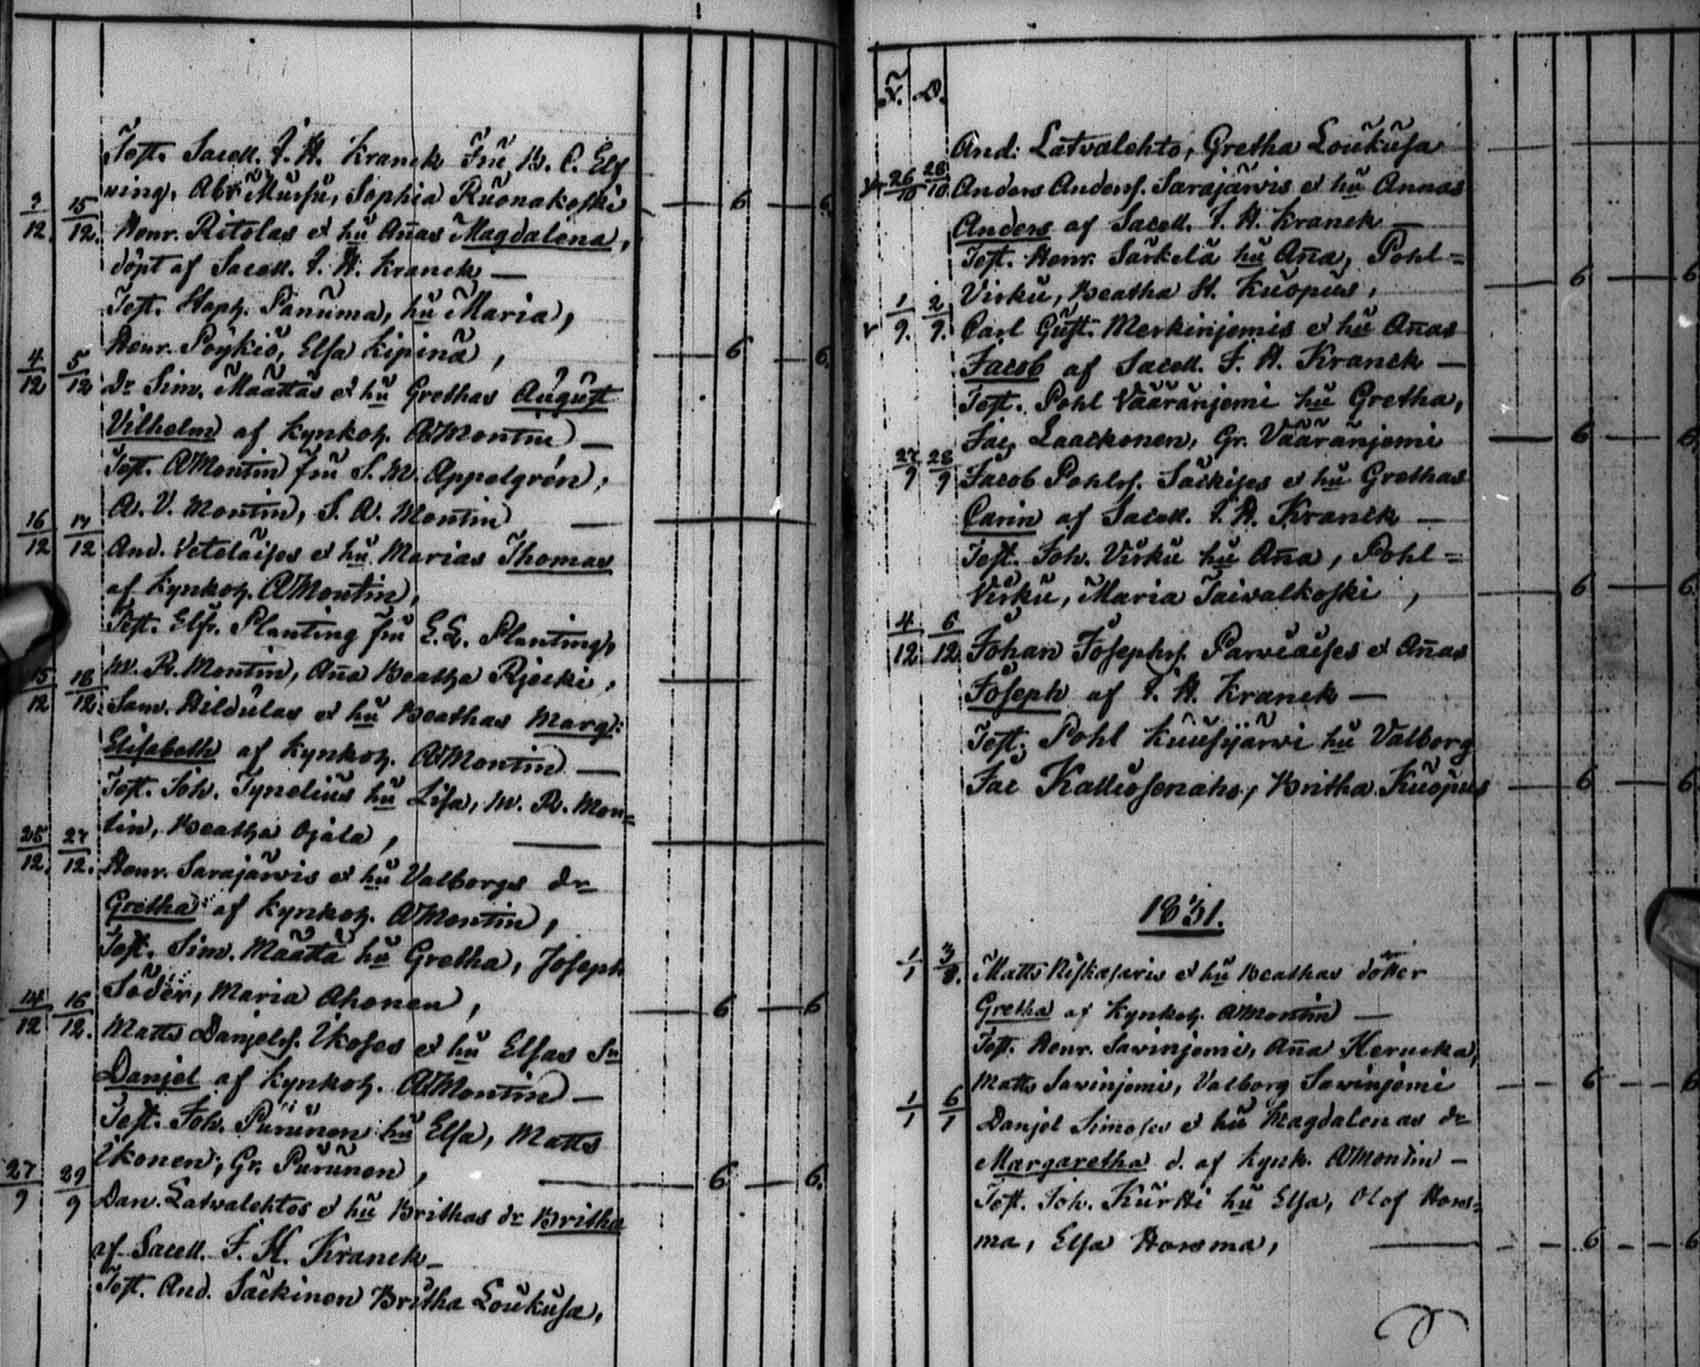 Test. Sacell. J. H. Kranck Fru B. C. Elf
ving, Abr. Mursu, Sophia Ruonakoski — 6 — 6
3/12 15/12. Henr. Ritolas et hu Añas Magdalena,
döpt af Sacell. J. H. Kranck —
Test. Steph. Panuma, hu Maria,
Henr. Pöykiö, Elsa Kipinä, — 6 — 6.
4/12 5/12 Dr Sim. Määttäs et hu Grethas August
Vilhelm af Kynkoh. AMontin —
Test. AMontin fru S. M. Appelgrén,
A. V. Montin, S. A. Montin —
16/12 17/12 And. Veteläises et hu Marias Thomas
af Kynkoh. AMontin,
Test. Elfr. Planting fru E. E. Planting,
M. R. Montin, Aña Beatha Rjecki, —
15/12 18/12 Sam. Hildulas et hu Beathas Marg:
Elisabeth af Kynkoh. AMontin —
Test. Joh. Tynelius hu Lisa, M. R. Mon=
tin, Beatha Ojala, —
25/12. 27/12. Henr. Sarajärvis et hu Valborgs dr
Gretha af Kynkoh. AMontin,
Test. Sim. Määttä hu Gretha, Joseph
Söder, Maria Ahonen, — 6 — 6
14/12 16/12. Matts Danjelss. Ikoses et hu Elsas Sn
Danjel af Kynkoh. AMontin —
Test. Joh. Purunen hu Elsa, Matts
Ikonen, Gr. Purunen, — 6 — 6.
27/9 29/9 Dan. Latvalehtos et hu Brithas dr Britha
af Sacell. J. H. Kranck —
Test. And. Säckinen Britha Loukusa,
F. D.
And: Latvalehto, Gretha Loukusa —
26/10 28/10 Anders Anderss. Sarajärvis et hu Annas
Anders af Sacell. J. H. Kranck —
Test. Henr. Särkelä hu Aña, Pohl=
Virku, Beatha H. Kuopus, — 6 — 6
1/9. 2/9. Carl Gust. Merkinjemis et hu Añas
Jacob af Sacell. J. H. Kranck —
Test. Pohl Vääränjemi hu Gretha,
Jac. Laackonen, Gr. Vääränjemi — 6 — 6
27/9 28/9 Jacob Pohlss. Säckises et hu Grethas
Carin af Sacell. J. H. Kranck —
Test. Joh. Virku hu Aña, Pohl=
Virku, Maria Taivalkoski, — 6 — 6
4/12 6/12 Johan Josephss. Parviaises et Añas
Joseph af J. H. Kranck —
Test. Pohl Kuusijärvi hu Valborg
Jac Kalliosenaho, Britha Kuopus — 6 — 6
1831.
1/1 3/8. Matts Niskasaris et hu Beathas dotter
Gretha af Kynkoh. AMontin —
Test. Henr. Savinjemi, Aña Herucka,
Matts Savinjemi, Valborg Savinjemi — 6 — 6
1/1 6/1 Danjel Simoses et hu Magdalenas dr
Margaretha d. af Kynk. AMontin —
Test. Joh. Kurtti hu Elsa, Olof Hors=
ma, Elsa Horsma, — 6 — 6